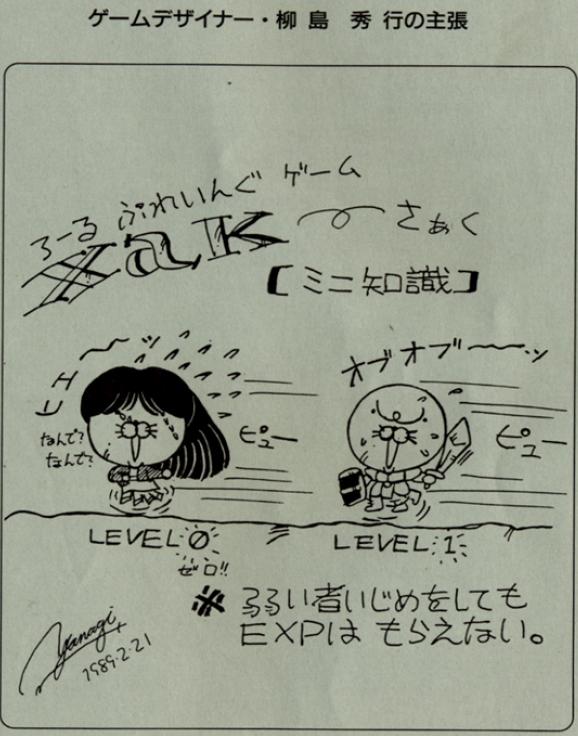 ゲームデザイナー・柳島 秀行の主張
ろーるぷれいんぐゲーム
XaK さぁく
【ミニ知識】
ヒエ〜〜ッ
オブオブ〜〜ッ
なんで?
なんで?
ピュー
ピュー
LEVEL 0
ゼロ!!
LEVEL 1
※ 弱い者いじめをしても
EXPは もらえない。
Yanagi
1989・2・21